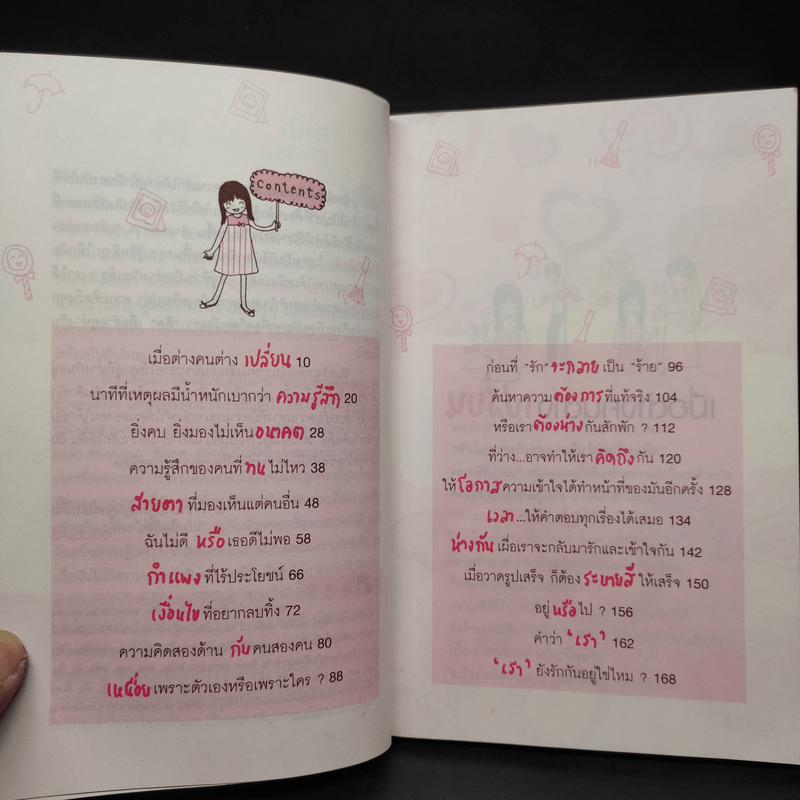 Contents
เมื่อต่างคนต่าง เปลี่ยน 10
นาทีที่เหตุผลมีน้ำหนักเบากว่า ความรู้สึก 20
ยิ่งคบ ยิ่งมองไม่เห็น อนาคต 28
ความรู้สึกของคนที่ ทน ไม่ไหว 38
สายตา ที่มองเห็นแต่คนอื่น 48
ฉันไม่ดี หรือ เธอดีไม่พอ 58
กำแพง ที่ไร้ประโยชน์ 66
เงื่อนไข ที่อยากลบทิ้ง 72
ความคิดสองด้าน กับ คนสองคน 80
เหนื่อย เพราะตัวเองหรือเพราะใคร ? 88
ก่อนที่ "รัก" จะกลาย เป็น "ร้าย" 96
ค้นหาความ ต้องการ ที่แท้จริง 104
หรือเรา ต้องห่าง กันสักพัก ? 112
ที่ว่าง...อาจทำให้เรา คิดถึง กัน 120
ให้ โอกาส ความเข้าใจได้ทำหน้าที่ของมันอีกครั้ง 128
เวลา ...ให้คำตอบทุกเรื่องได้เสมอ 134
ห่างกัน เผื่อเราจะกลับมารักและเข้าใจกัน 142
เมื่อวาดรูปเสร็จ ก็ต้อง ระบายสี ให้เสร็จ 150
อยู่ หรือ ไป ? 156
คำว่า 'เรา' 162
'เรา' ยังรักกันอยู่ใช่ไหม ? 168